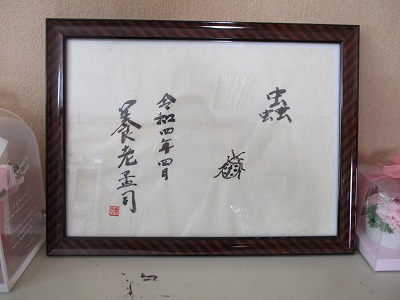 蟲
令和四年四月
養老孟司